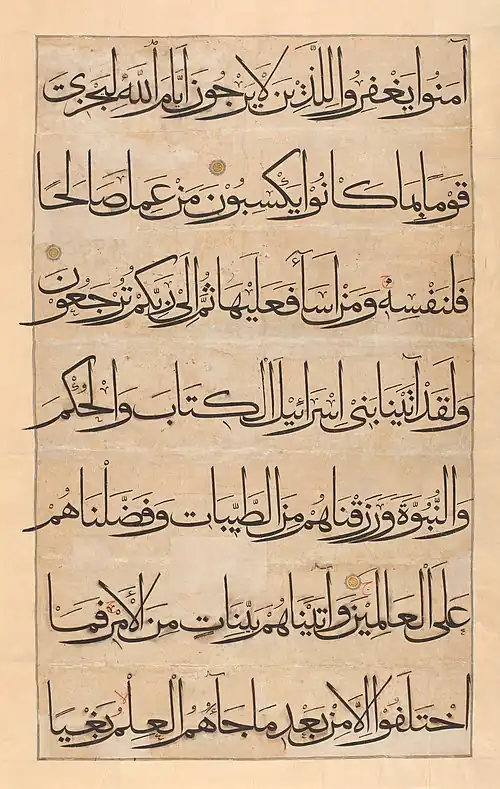 آمَنُوا يَغْفِرُوا لِلَّذِيْنَ لَا يَرْجُونَ أَيَّامَ اللَّهِ لِيَجْزِيَ
قَوْمًا بِمَا كَانُوا يَكْسِبُوْنَ مَنْ عَمِلَ صَالِحًا
فَلِنَفْسِهِ وَمَنْ أَسَآءَ فَعَلَيْهَا ثُمَّ إِلَى رَبِّكُمْ تُرْجَعُوْنَ
وَلَقَدْ آتَيْنَا بَنِيْ إِسْرَائِيْلَ الْكِتَابَ وَالْحُكْمَ
وَالنُّبُوَّةَ وَرَزَقْنَاهُمْ مِنَ الطَّيِّبَاتِ وَفَضَّلْنَاهُمْ
عَلَى الْعَالَمِيْنَ وَآتَيْنَاهُمْ بَيِّنَاتٍ مِنَ الْأَمْرِ فَمَا
اخْتَلَفُوا إِلَّا مِنْ بَعْدِ مَا جَآءَهُمُ الْعِلْمُ بَغْيًا